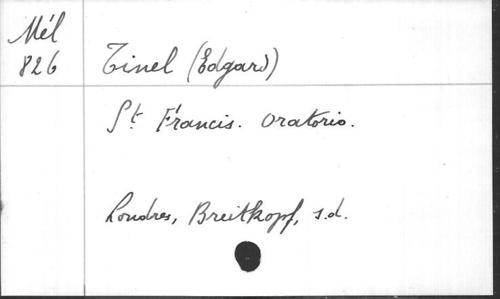 Mél
826
Tinel (Edgard)
St Francis. Oratorio.
Londres, Breitkopf, s.d.